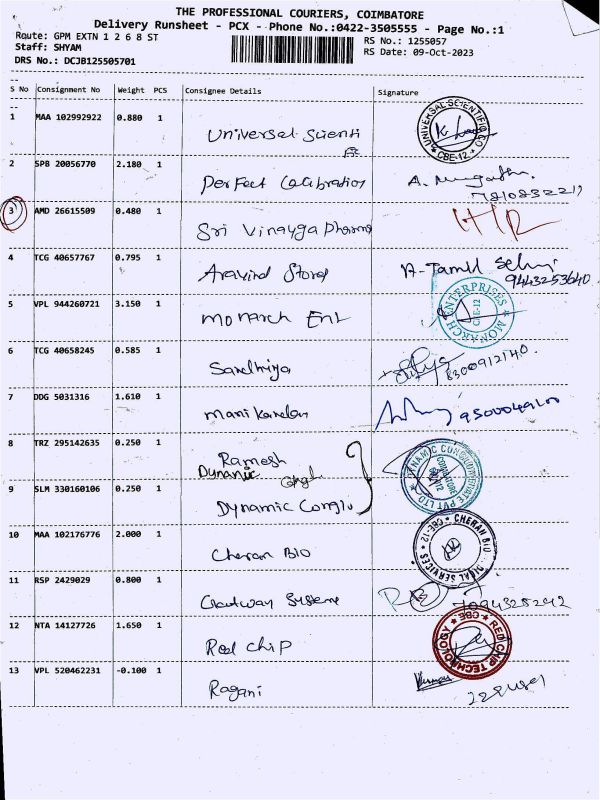 THE PROFESSIONAL COURIERS, COIMBATORE
Delivery Runsheet - PCX - Phone No.:0422-3505555 - Page No.:1
Route: GPM EXTN 1 2 6 8 ST RS No.: 1255057
Staff: SHYAM RS Date: 09-Oct-2023
DRS No.: DCJB125505701
S No Consignment No Weight PCS Consignee Details Signature
1 MAA 102992922 0.880 1 Universal Scienti UNIVERSAL SCIENTIFIC CO CBE-12
2 SPB 20056770 2.180 1 Perfect Calibration A.
3 AMD 26615509 0.480 1 Sri Vinayga Pharma
4 TCG 40657767 0.795 1 Aravind Stores A-Tamil Selvi 9443253640
5 VPL 944260721 3.150 1 Monarch Ent MONARCH ENTERPRISES CBE-12
6 TCG 40658245 0.585 1 Sandhiya 8300912140.
7 DDG 5031316 1.610 1 Manikandan
8 TRZ 295142635 0.250 1 Ramesh
Dynamic
9 SLM 330160106 0.250 1 Dynamic Conglo DYNAMIC PVT LTD COIMBATORE
10 MAA 102176776 2.000 1 Cheran Bio CHERAN BIO MEDICAL SERVICES CBE-12
11 RSP 2429029 0.800 1
12 NTA 14127726 1.650 1 Red Chip RED CHIP TECHNOLOGY CBE
13 VPL 520462231 -0.100 1 Ragani